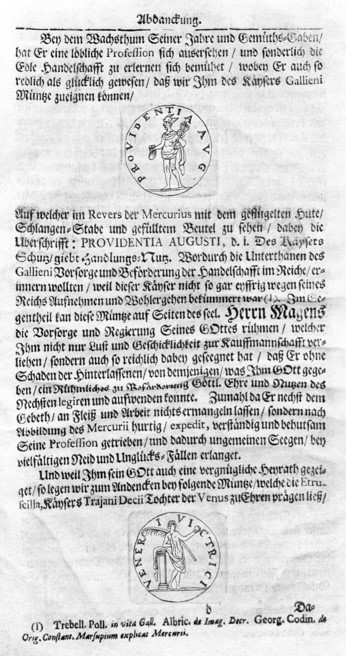 Abdanckung.
Bey dem Wachsthum Seiner Jahre und Gemüths-Gaben/
hat Er eine löbliche Profession sich ausersehen/ und sonderlich die
Edle Handelschafft zu erlernen sich bemühet/ wobey Er auch so
redlich als glücklich gewesen/ daß wir Ihm des Käysers Gallieni
Müntze zueignen können/
PROVIDENTIA AVG
Auf welcher im Revers der Mercurius mit dem geflügelten Hute/
Schlangen-Stabe und gefülltem Beutel zu sehen/ dabey die
Uberschrifft: PROVIDENTIA AUGUSTI, d. i. Des Käysers
Schutz/ giebt Handlungs-Nutz. Wordurch die Unterthanen des
Gallieni Vorsorge und Beförderung der Handelschafft im Reiche/ er-
innern wollten/ weil dieser Käyser nicht so gar eyffrig wegen seines
Reichs Aufnehmen und Wohlergehen bekümmert war (1). Im Ge-
gentheil kan diese Müntze auf Seiten des seel. Herrn Magens
die Vorsorge und Regierung Seines GOttes rühmen/ welcher
Ihm nicht nur Lust und Geschicklichkeit zur Kauffmannschafft ver-
liehen/ sondern auch so reichlich dabey gesegnet hat/ daß Er ohne
Schaden der Hinterlassenen/ von demjenigen/ was Ihm GOtt gege-
ben/ ein Rühmliches zu Beförderung Göttl. Ehre und Nutzen des
Nechsten legiren und aufwenden konnte. Zumahl da Er nechst dem
Gebeth/ an Fleiß und Arbeit nichts ermangeln lassen/ sondern nach
Abbildung des Mercurii hurtig/ expedit, verständig und behutsam
Seine Profession getrieben/ und dadurch ungemeinen Seegen/ bey
vielfältigen Neid und Unglücks-Fällen erlanget.
Und weil Ihm sein GOtt auch eine vergnügliche Heyrath gezei-
get/ so legen wir zum Andencken bey folgende Müntze/ welche die Etru-
scilla, Käysers Trajani Decii Tochter der Venus zu Ehren prägen ließ/
VENERI VICTRICI
b
Da-
(1) Trebell. Poll. in vita Gall. Albric. de Imag. Deor. Georg. Codin. de
Orig. Constant. Marsupium explicat Mercurii.